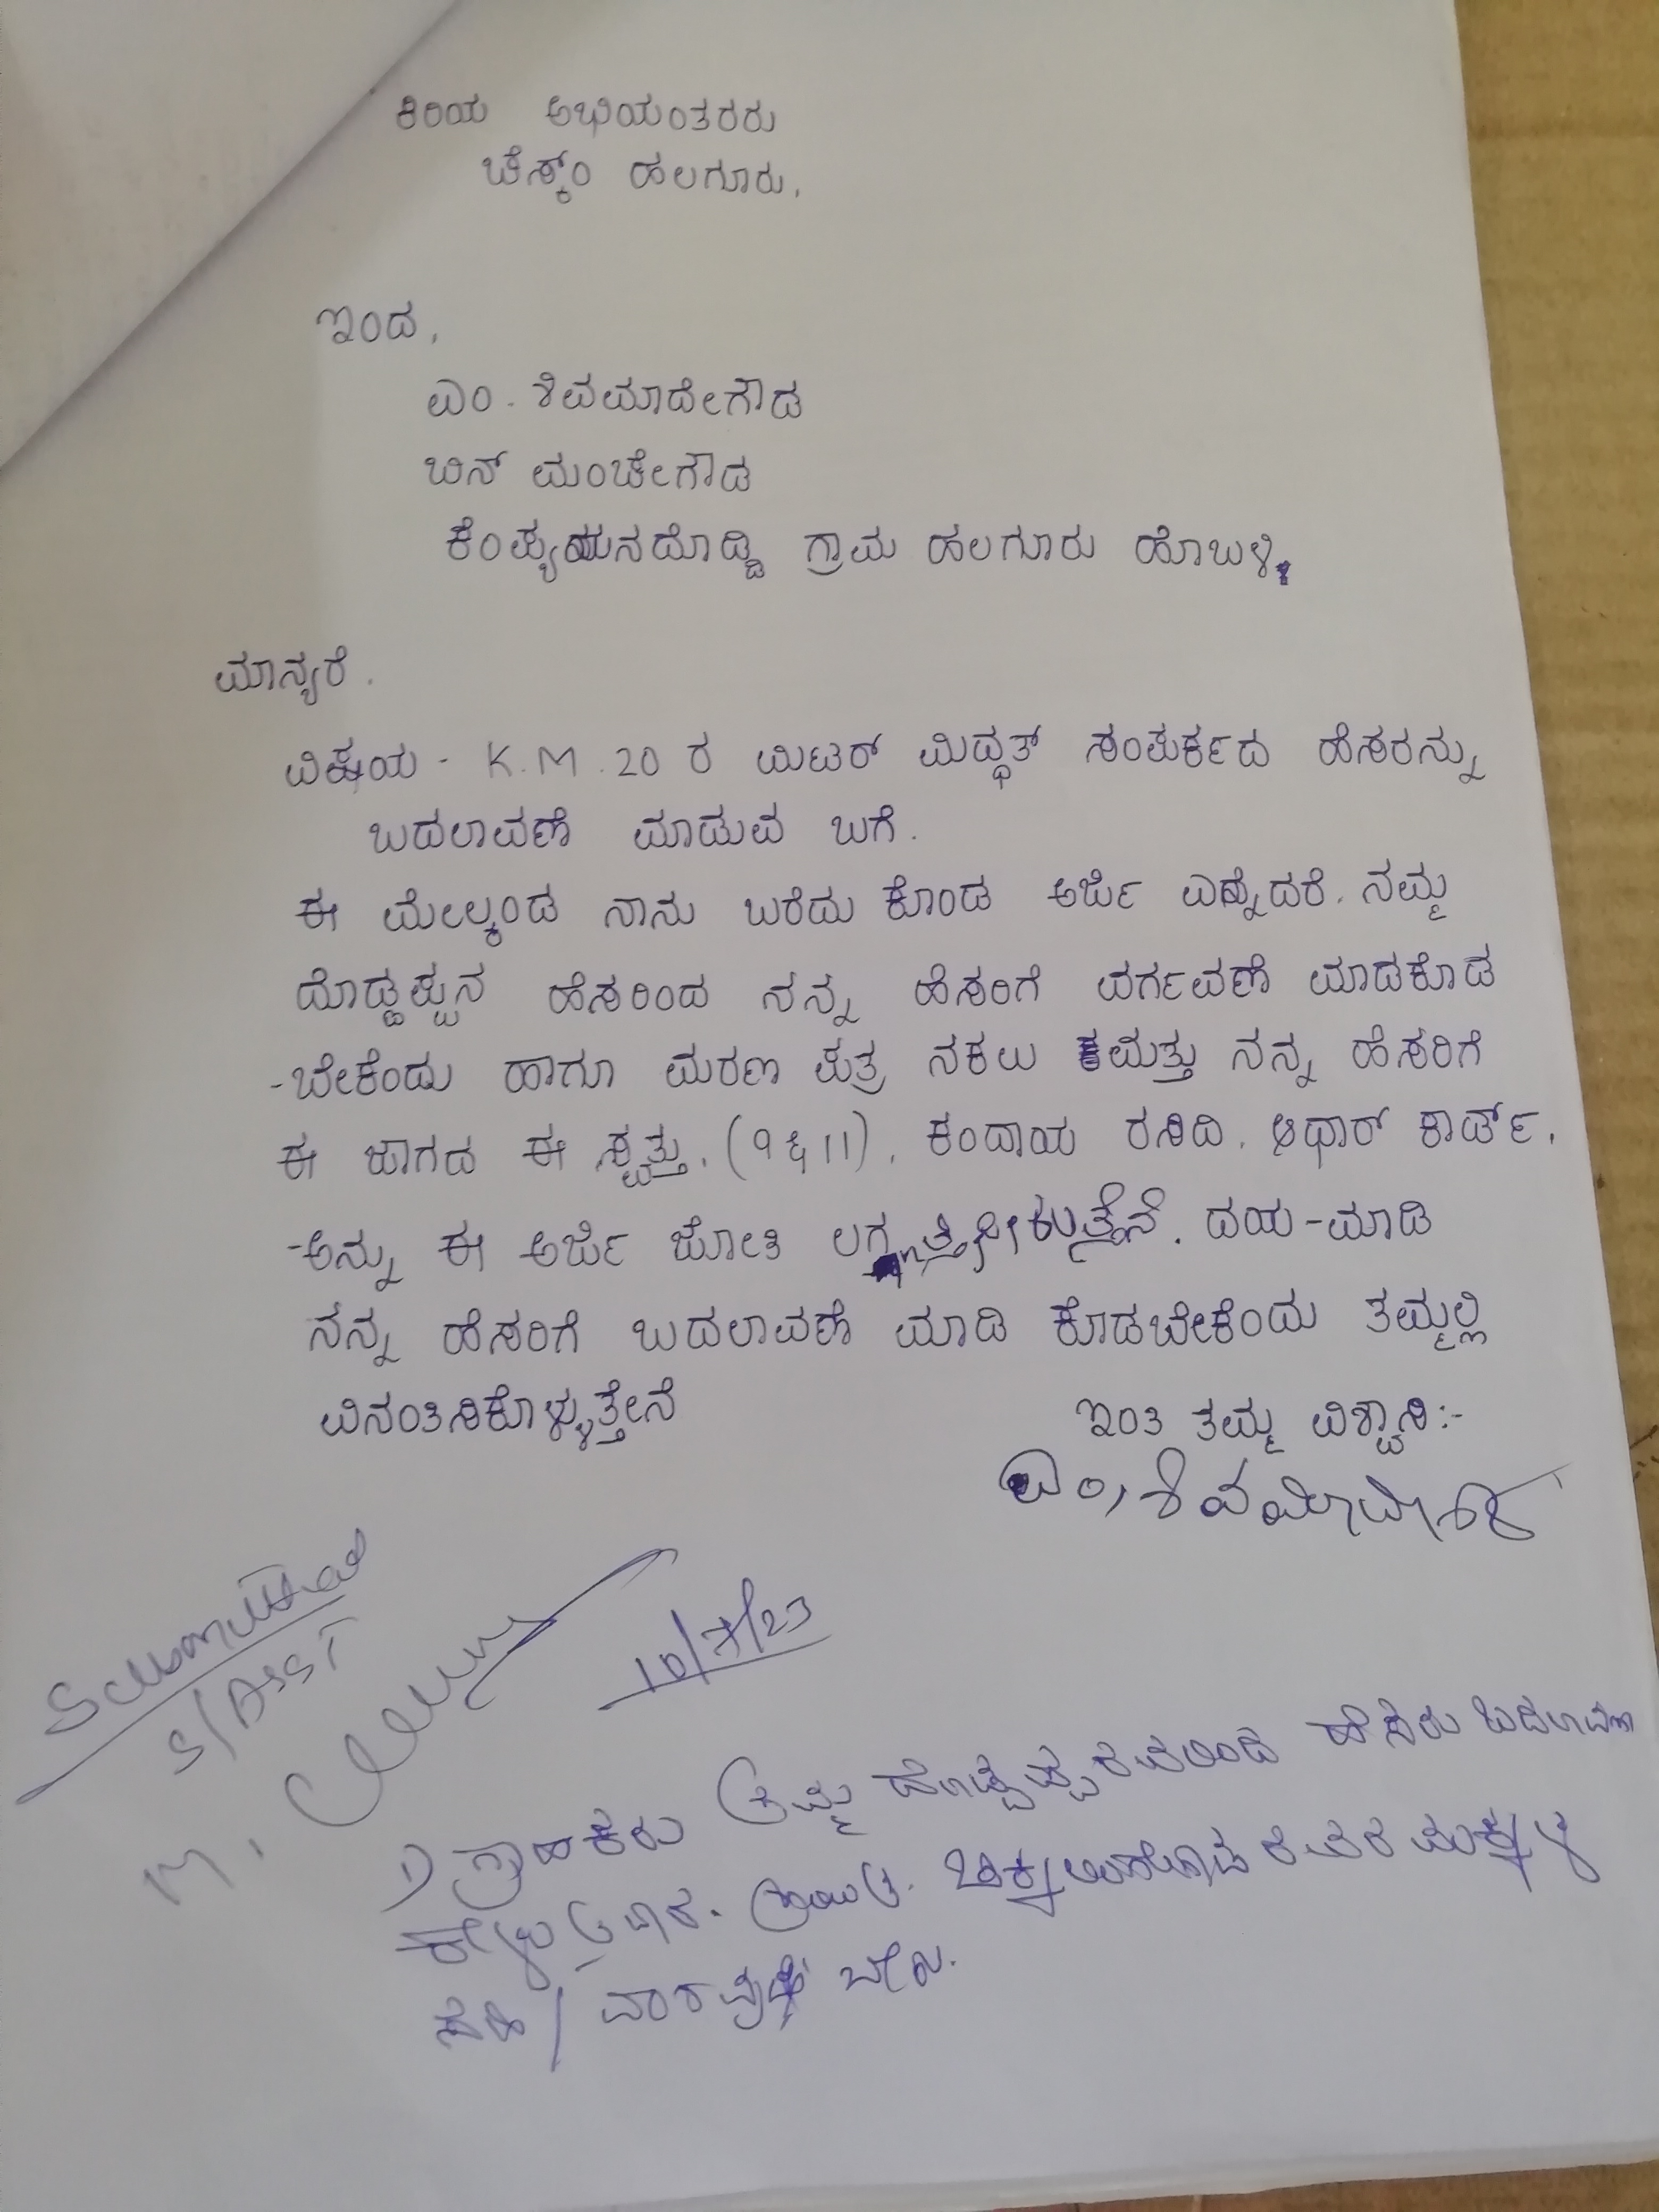 ಕಿರಿಯ ಅಭಿಯಂತರರು
ಚೆಸ್ಕ್ಂ ಹಲಗೂರು.
ಇಂದ,
ಎಂ. ಶಿವಮಾದೇಗೌಡ
ಬಿನ್ ಮಂಚೇಗೌಡ
ಕೆಂಪ್ಯಯನದೊಡ್ಡಿ ಗ್ರಾಮ ಹಲಗೂರು ಹೊಬಳಿ.
ಮಾನ್ಯರೆ.
ವಿಷಯ - K.M.20 ರ ಮಿಟರ್ ಮಿದ್ಧತ್ ಸಂಪರ್ಕದ ಹೆಸರನ್ನು
ಬದಲಾವಣೆ ಮಾಡುವ ಬಗೆ.
ಈ ಮೇಲ್ಕಂಡ ನಾನು ಬರೆದು ಕೊಂಡ ಅರ್ಜಿ ಎನ್ನೆದರೆ. ನಮ್ಮ
ದೊಡ್ಡಪ್ಪನ ಹೆಸರಿಂದ ನನ್ನ ಹೆಸರಿಗೆ ವರ್ಗವಣೆ ಮಾಡಕೊಡ
-ಬೇಕೆಂದು ಹಾಗೂ ಮರಣ ಪತ್ರ ನಕಲು ಮತ್ತು ನನ್ನ ಹೆಸರಿಗೆ
ಈ ಜಾಗದ ಈ ಸ್ವತ್ತು. (9 & 11). ಕಂದಾಯ ರಸಿದಿ. ಆಧಾರ್ ಕಾರ್ಡ್.
-ಅನ್ನು ಈ ಅರ್ಜಿ ಜೋತಿ ದಯ-ಮಾಡಿ
ನನ್ನ ಹೆಸರಿಗೆ ಬದಲಾವಣೆ ಮಾಡಿ ಕೊಡಬೇಕೆಂದು ತಮ್ಮಲ್ಲಿ
ವಿನಂತಿಸಿಕೊಳ್ಳುತ್ತೇನೆ
ಇಂತಿ ತಮ್ಮ ವಿಶ್ವಾಸಿ:-
ಎಂ, ಶಿವಮಾದೇಗೌಡ
Submitted
S/Asst
10/7/23
1) ಗ್ರಾಹಕರು ತಮ್ಮ ದೊಡ್ಡಪ್ಪರವರಿಂದ ಹೆಸರು ಬದಲಾವಣೆ